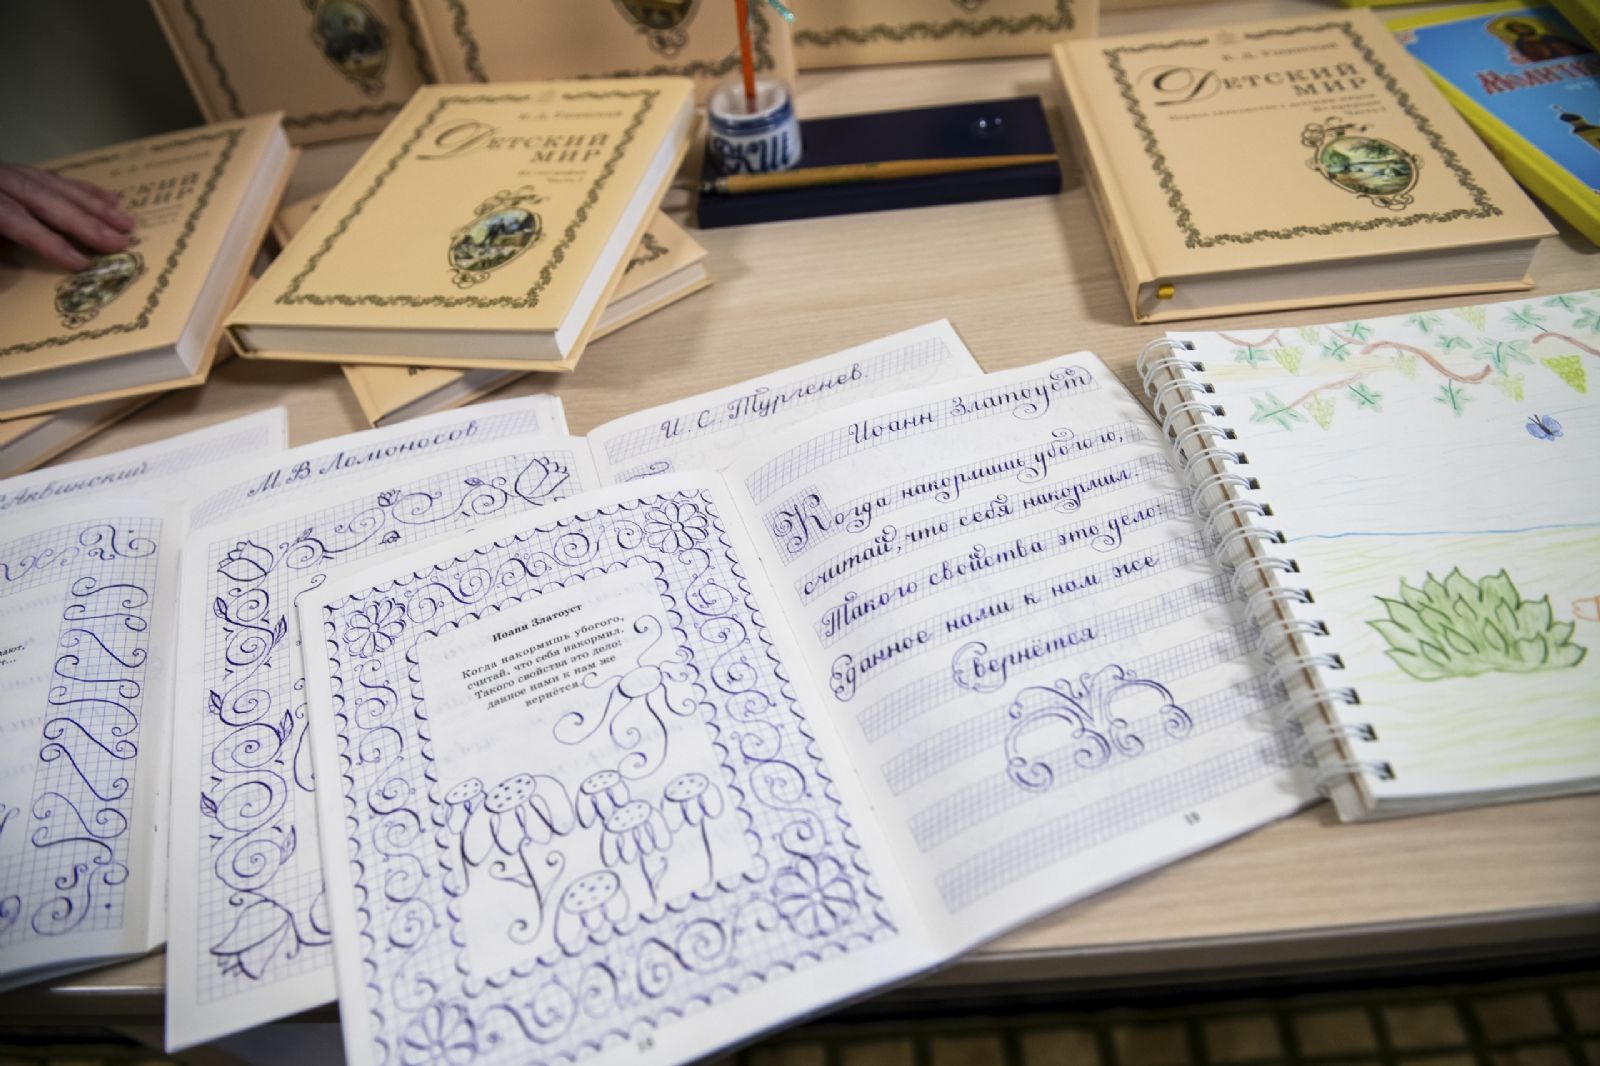 К. Д. Ушинский
Детский
мир
Часть I
К. Д. Ушинский
Детский
мир
Часть I
Детский
мир
Молит
Аквинский
М. В. Ломоносов
И. С. Тургенев
Иоанн Златоуст
Когда накормишь убогого,
считай, что себя накормил.
Такого свойства это дело:
данное нами к нам же
вернётся.
18
Иоанн Златоуст
Когда накормишь убогого,
считай, что себя накормил.
Такого свойства это дело:
данное нами к нам же
вернётся
19